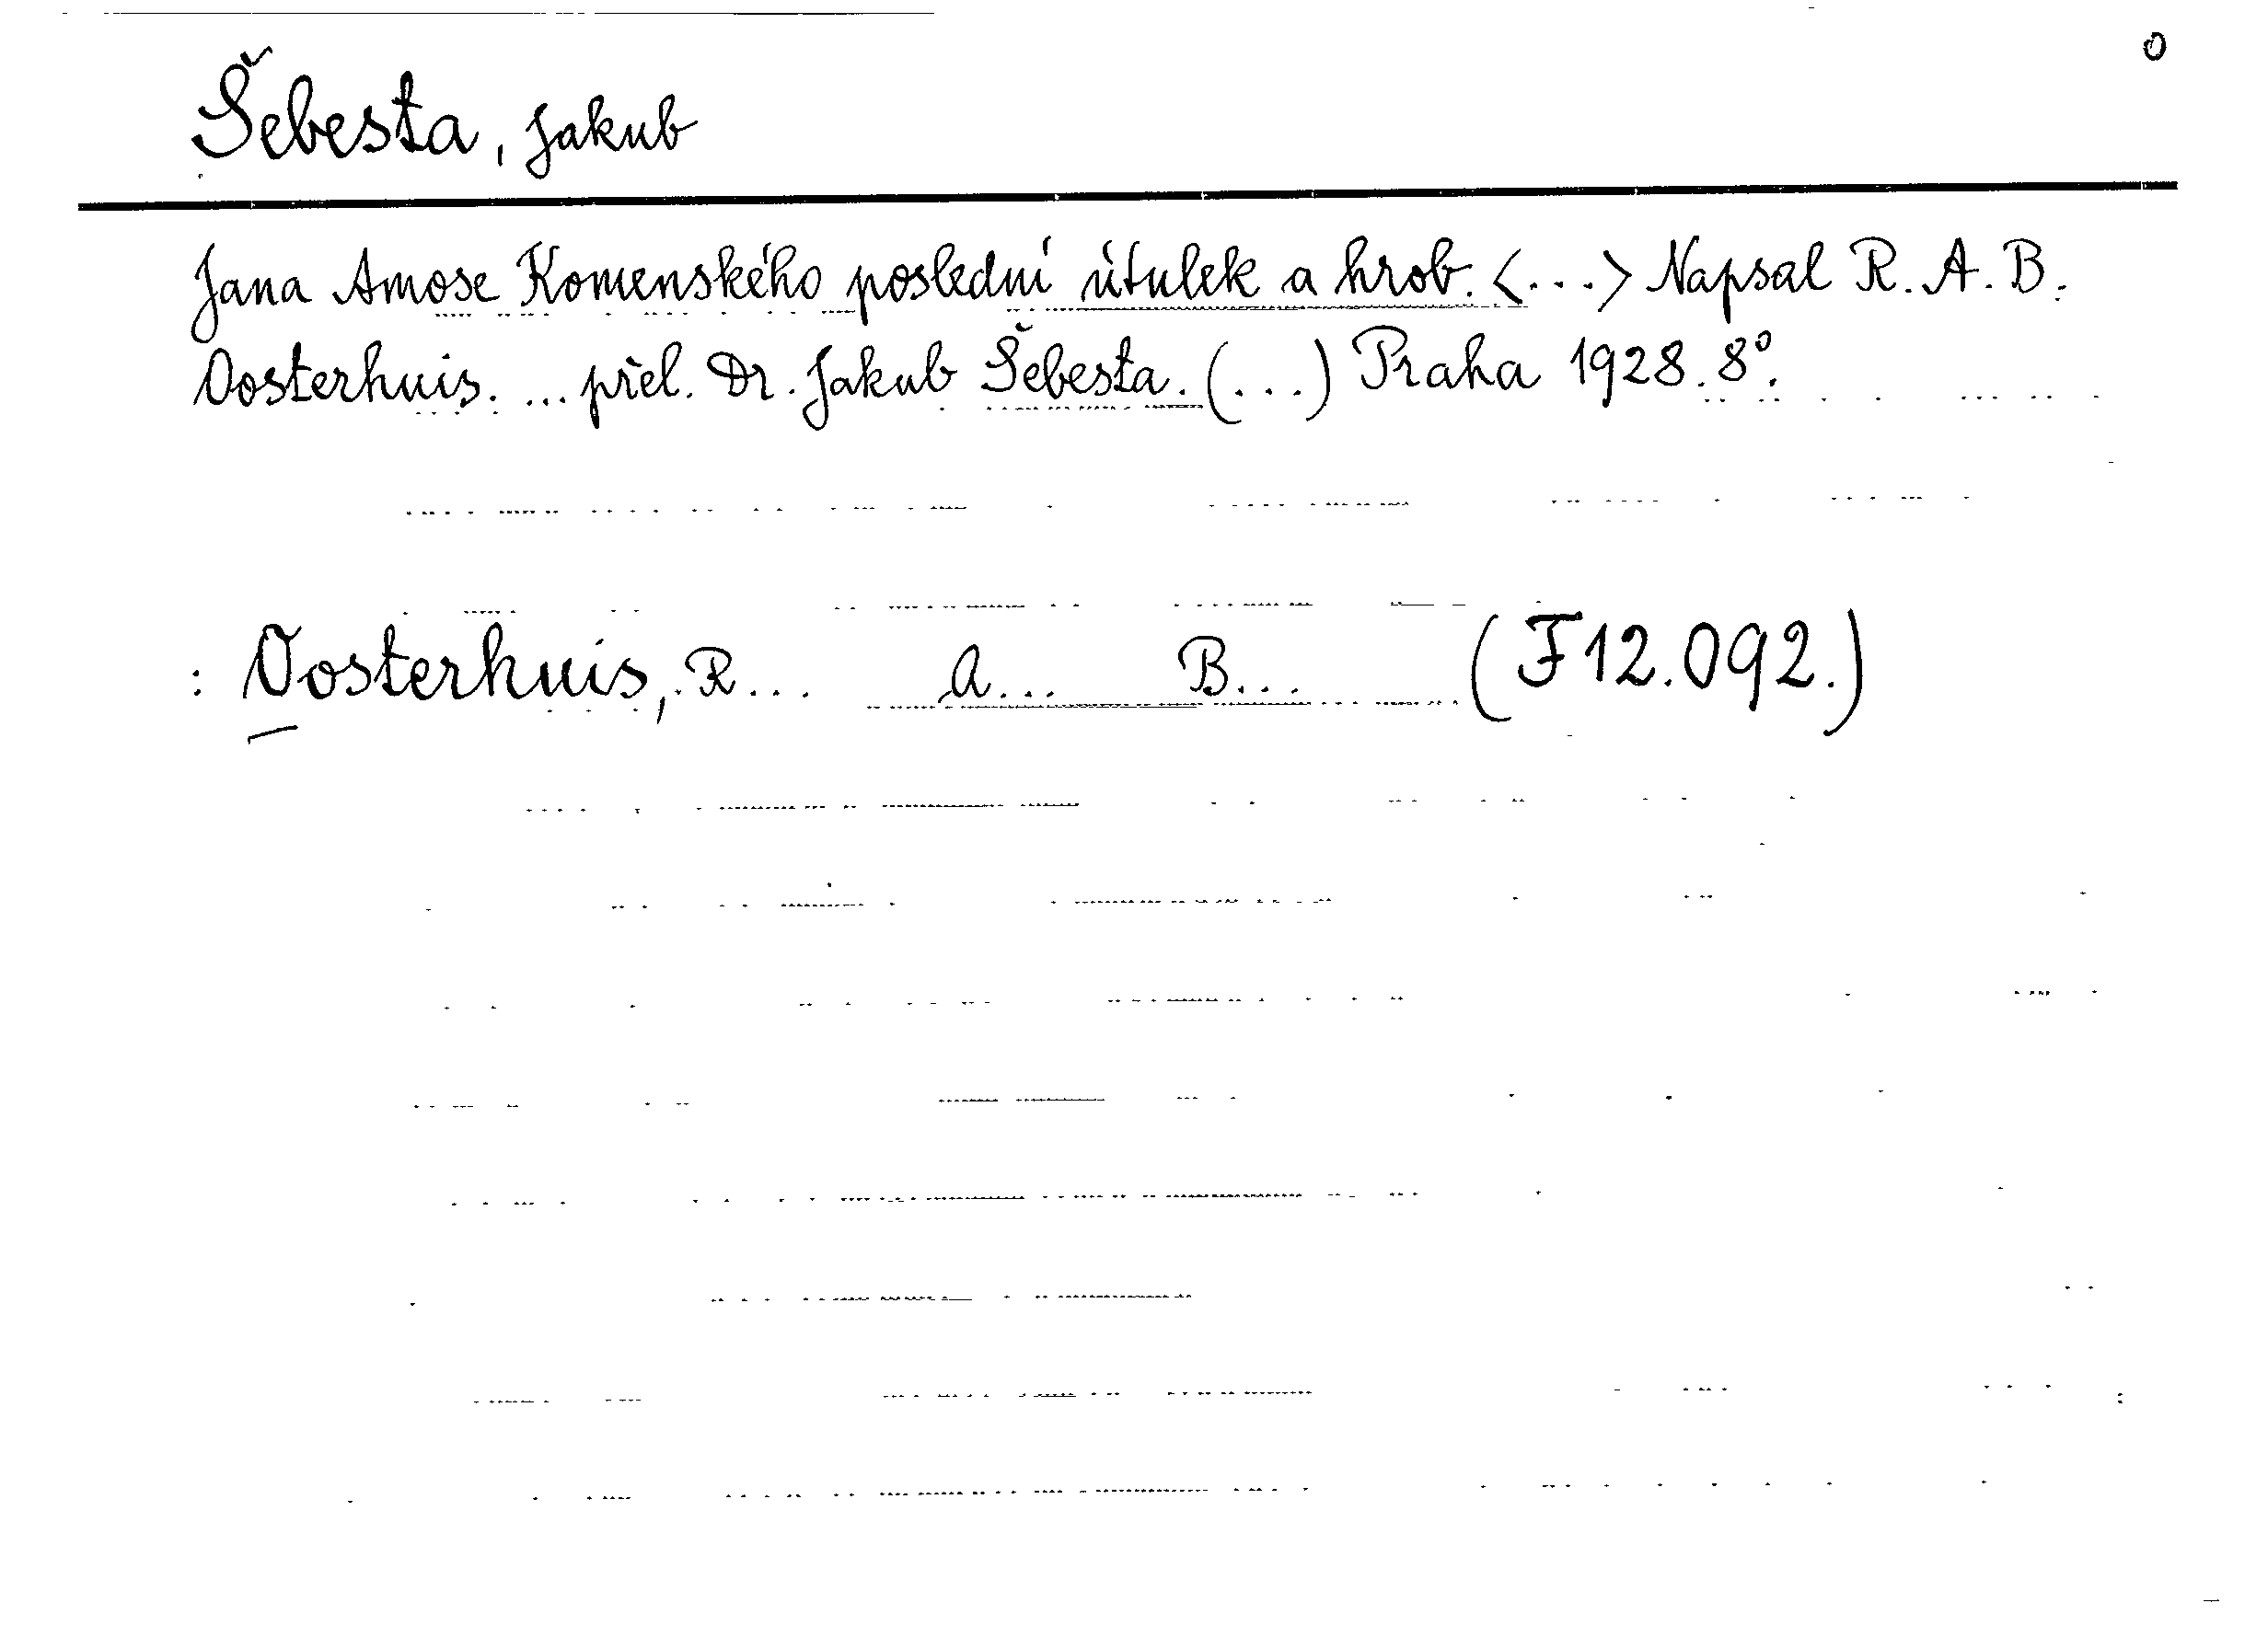 0
Šebesta, Jakub
Jana Amose Komenského poslední útulek a hrob. <...> Napsal R. A. B.
Oosterhuis. ... přel. Dr. Jakub Šebesta. (...) Praha 1928. 8°.
: Oosterhuis, R... A... B... (F12.092.)